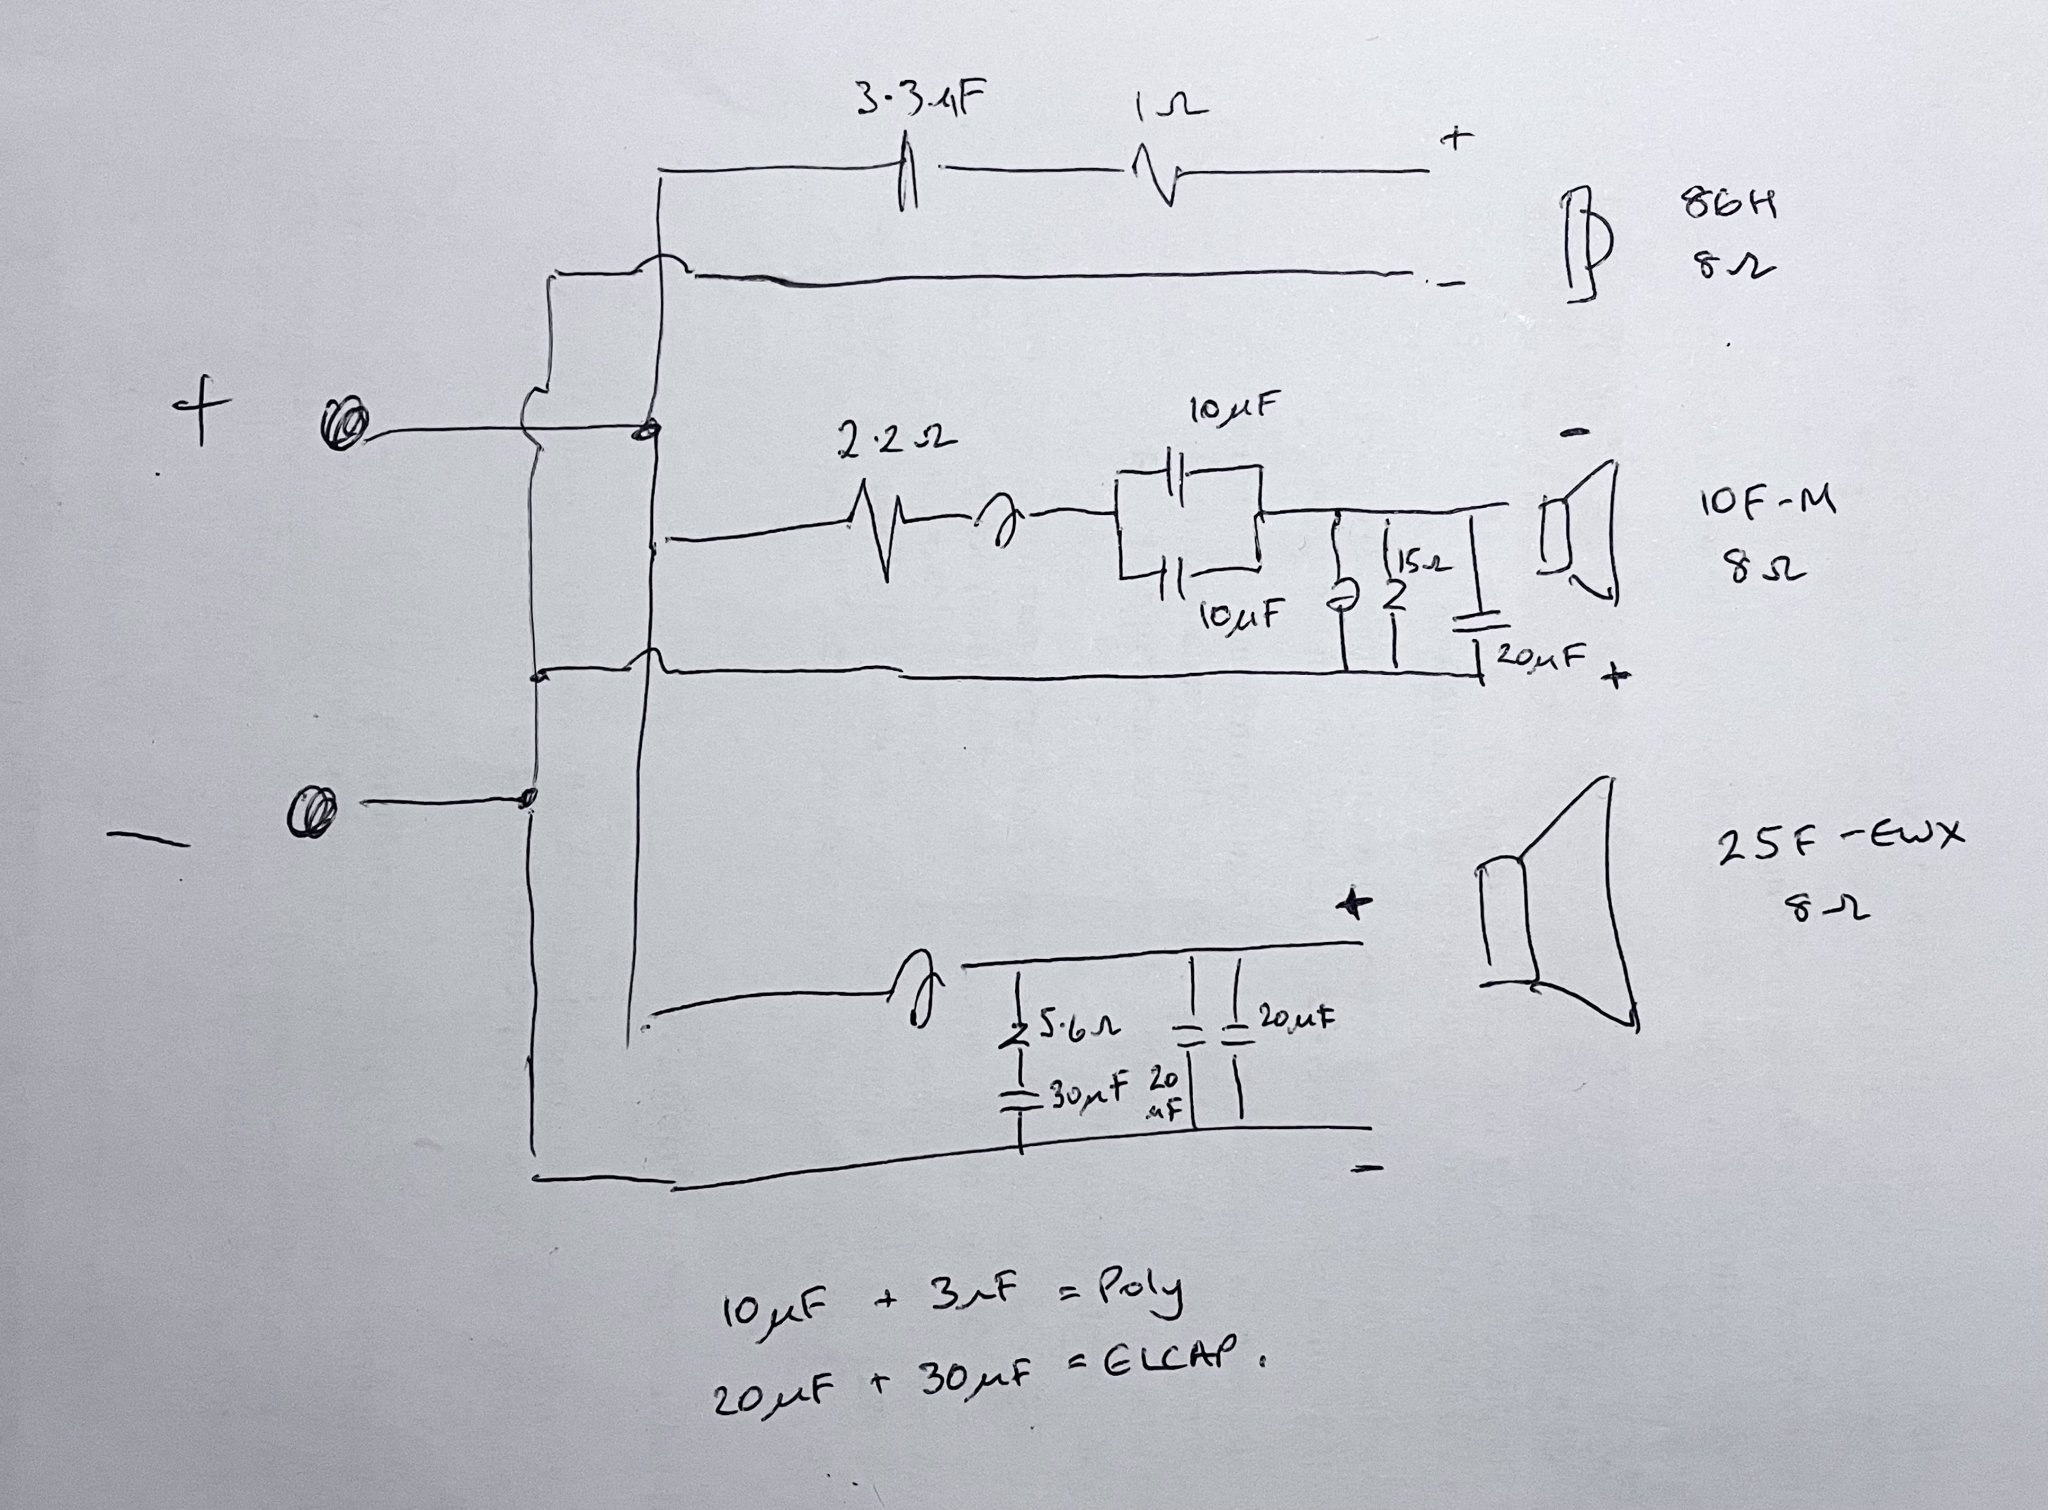 3.3µF
1Ω
+
86H
8Ω
-
+
2.2Ω
10µF
-
10F-M
8Ω
15Ω
10µF
20µF
+
-
25F-EWX
8Ω
+
5.6Ω
20µF
30µF
20
µF
-
10µF + 3µF = Poly
20µF + 30µF = ELCAP.